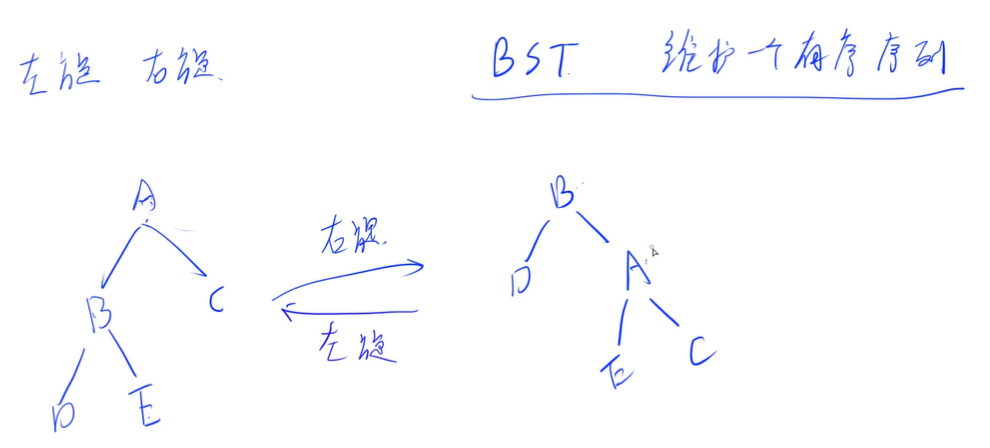 左旋 右旋
BST 维护一个有序序列
A
B C
D E
右旋
左旋
B
D A
E C